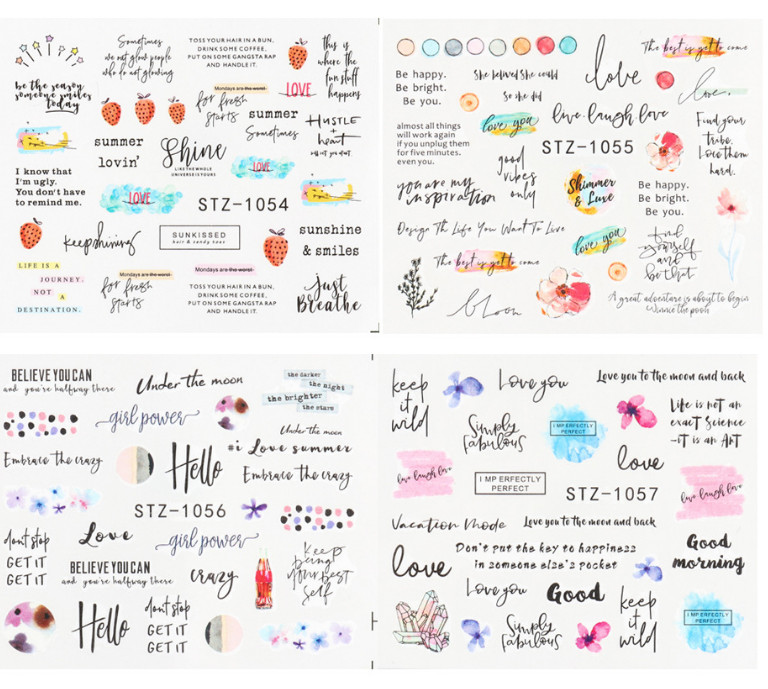 be the reason
someone smiles
today
Sometimes
we not glow people
who do not glowing
TOSS YOUR HAIR IN A BUN,
DRINK SOME COFFEE,
PUT ON SOME GANGSTA RAP
AND HANDLE IT.
this is
where the
fun stuff
happens
LOVE
Mondays are the worst
for fresh
starts
summer
Sometimes
HUSTLE
+
heart
will set you apart
summer
lovin'
Shine
LIKE THE WHOLE
UNIVERSE IS YOURS
LOVE
I know that
I'm ugly.
You don't have
to remind me.
LOVE
STZ-1054
keep shining
SUNKISSED
hair & sandy toes
sunshine
& smiles
LIFE IS A
JOURNEY.
NOT A
DESTINATION.
Mondays are the worst
for fresh
starts
Mondays are the worst
TOSS YOUR HAIR IN A BUN,
DRINK SOME COFFEE,
PUT ON SOME GANGSTA RAP
AND HANDLE IT.
just
Breathe
The best is yet to come
Be happy.
Be bright.
Be you.
She believed she could
so she did
love
love.
love you
live laugh love
Find your
tribe.
Love them
hard.
almost all things
will work again
if you unplug them
for five minutes.
even you.
STZ-1055
good
vibes
only
you are my
inspiration
Shimmer
& Luxe
Be happy.
Be bright.
Be you.
Design Th Life You Want To Live
love you
find
yourself
and
be that
The best is yet to come
bloom
A great adventure is about to begin
Winnie the pooh
BELIEVE YOU CAN
and you're halfway there
Under the moon
the darker
the night
the brighter
the stars
girl power
Under the moon
#i Love summer
Embrace the crazy
Hello
Embrace the crazy
STZ-1056
dont stop
GET IT
GET IT
Love
girl power
BELIEVE YOU CAN
and you're halfway there
crazy
keep
being
your best
self
Hello
dont stop
GET IT
GET IT
keep
it
wild
Love you
Love you to the moon and back
Simply
fabulous
IMPERFECTLY
PERFECT
Life is not an
exact Science
-it is an Art
love
love laugh love
IMPERFECTLY
PERFECT
STZ-1057
love laugh love
Vacation Mode
Love you to the moon and back
love
Don't put the key to happiness
in someone else's pocket
Good
morning
Love you
Good
keep
it
wild
Simply
fabulous
IMPERFECTLY
PERFECT